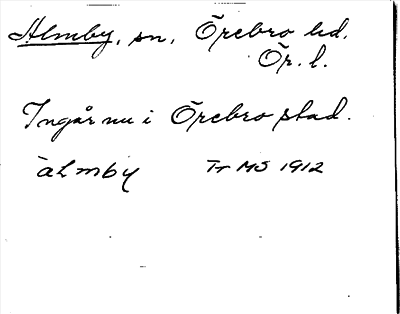 Almby, sn, Örebro hd.
Ör. l.
Ingår nu i Örebro stad.
àlmby Tr MS 1912